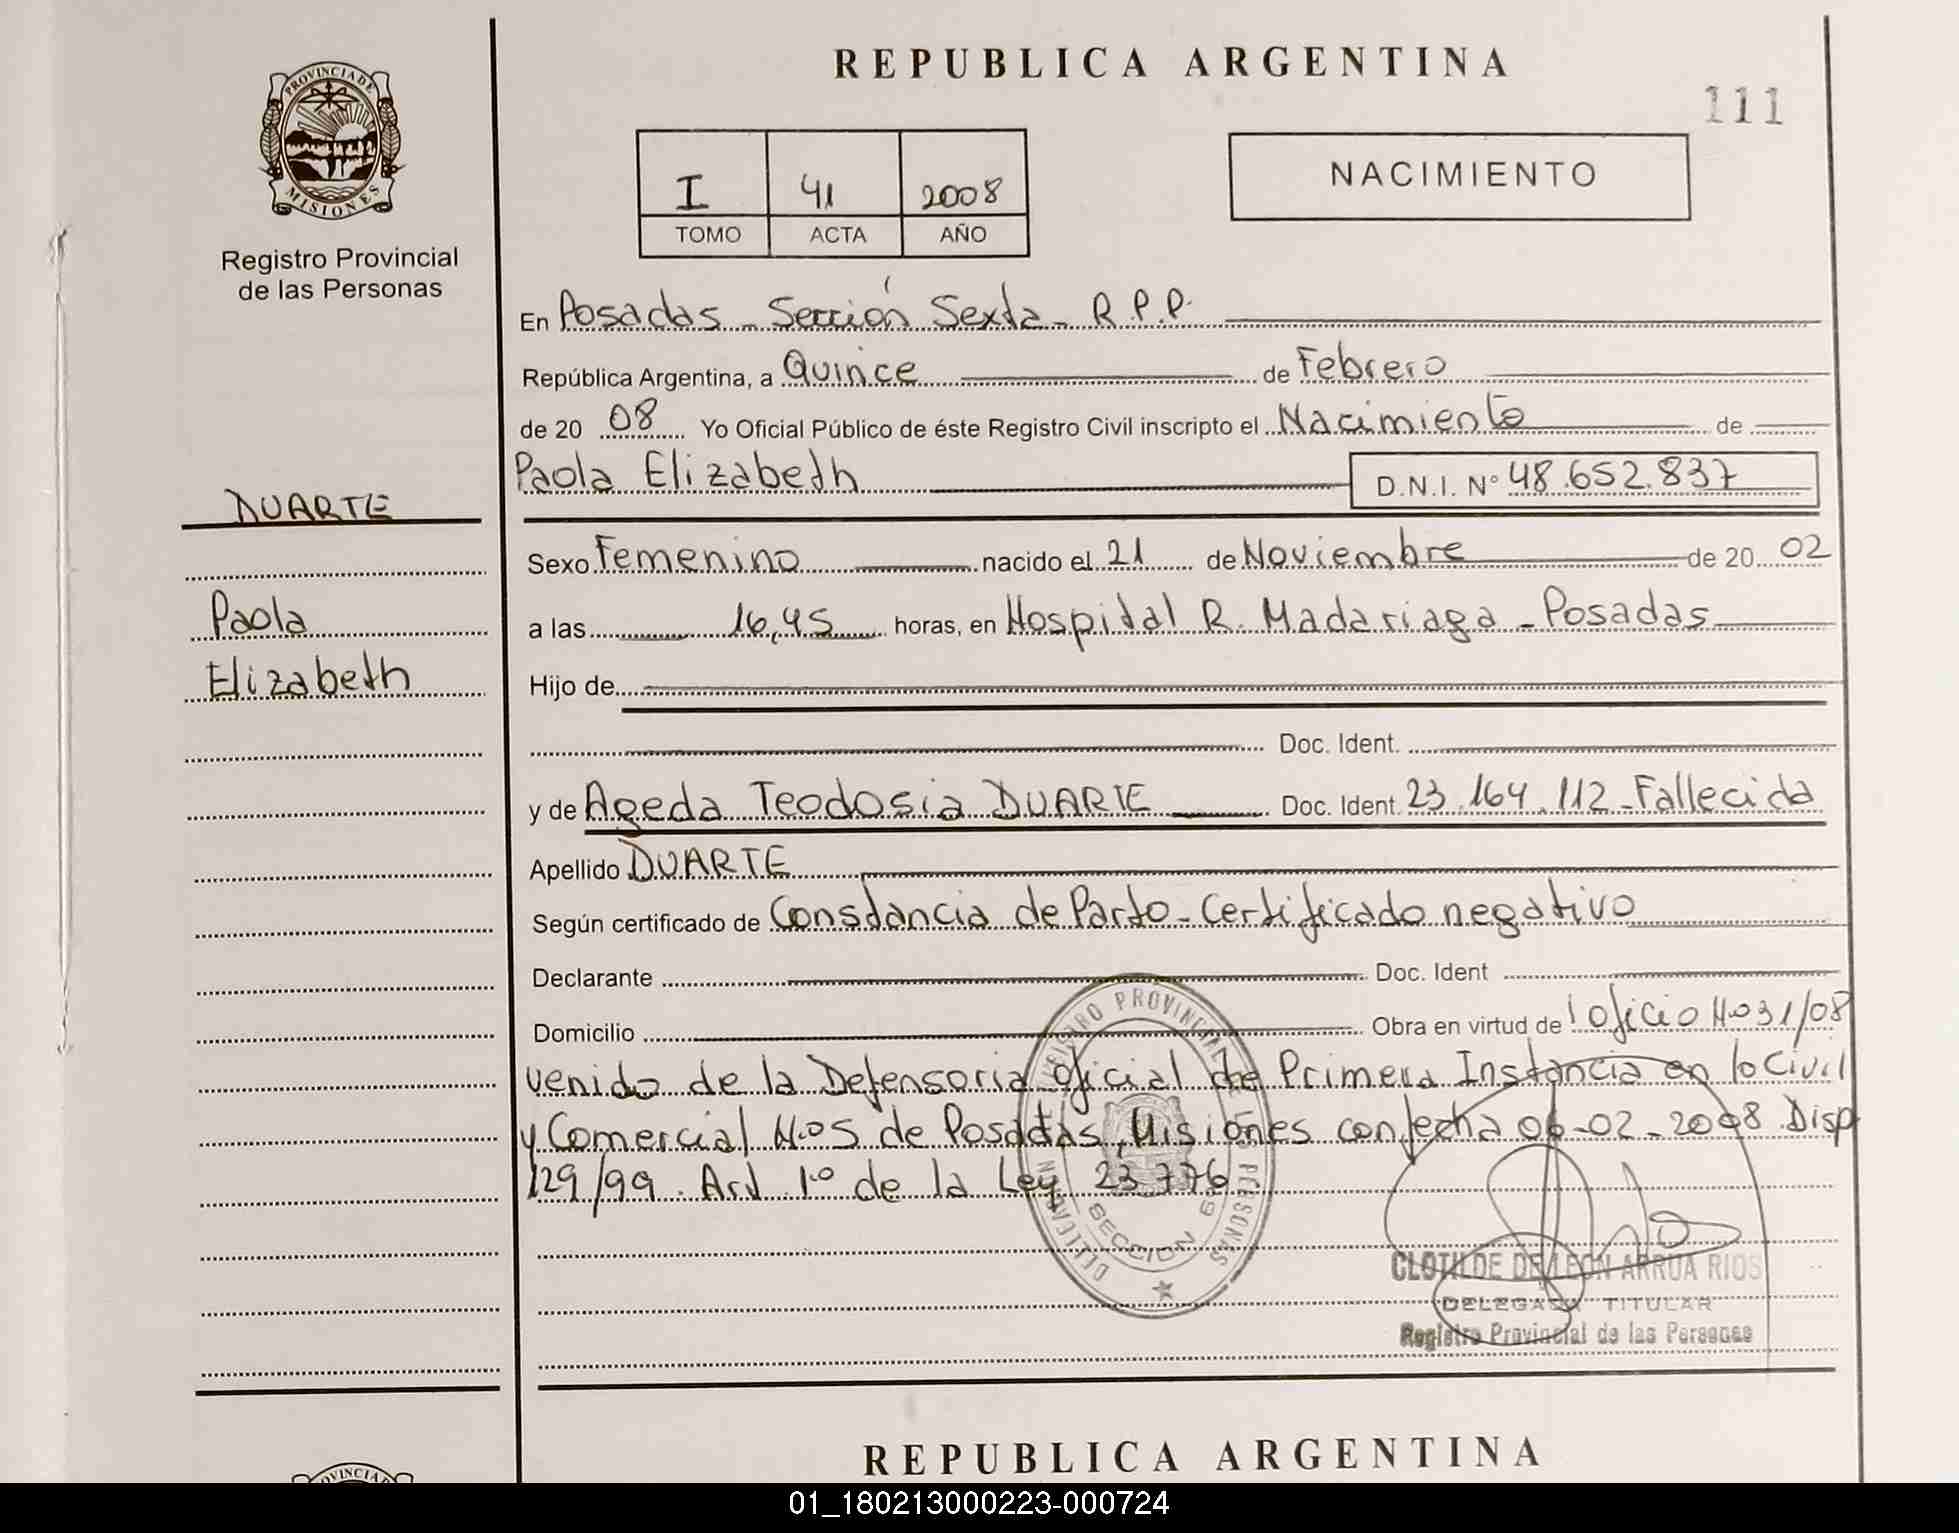 REPUBLICA ARGENTINA
111
PROVINCIA DE
MISIONES
Registro Provincial
de las Personas
I 41 2008
TOMO ACTA AÑO
NACIMIENTO
En Posadas - Sección Sexta - R.P.P.
República Argentina, a Quince de Febrero
de 20 08 Yo Oficial Público de éste Registro Civil inscripto el Nacimiento de
Paola Elizabeth D.N.I. N° 48.652.837
DUARTE
Paola
Elizabeth
Sexo Femenino nacido el 21 de Noviembre de 20 02
a las 16,45 horas, en Hospital R. Madariaga - Posadas
Hijo de
Doc. Ident.
y de Ageda Teodosia DUARTE Doc. Ident. 23.164.112 - Fallecida
Apellido DUARTE
Según certificado de Constancia de Parto - Certificado negativo
Declarante Doc. Ident
Domicilio Obra en virtud de l oficio N.o 31/08
venido de la Defensoria oficial de Primera Instancia en lo Civil
y Comercial N.o 5 de Posadas, Misiones con fecha 06-02-2008. Disp
129/99. Art 1.o de la Ley 23776
REGISTRO PROVINCIAL DE PERSONAS
DELEGACION
SECCION 6ª
CLOTILDE DE LEON ARRUA RIOS
DELEGADA TITULAR
Registro Provincial de las Personas
REPUBLICA ARGENTINA
PROVINCIA
01_180213000223-000724